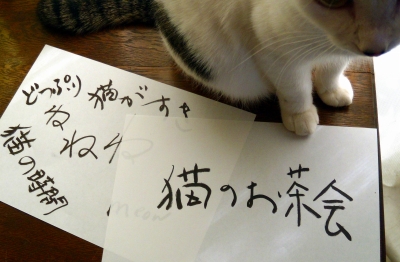 どっぷり猫がすき
ね
ねね
猫の時間
meow
猫のお茶会